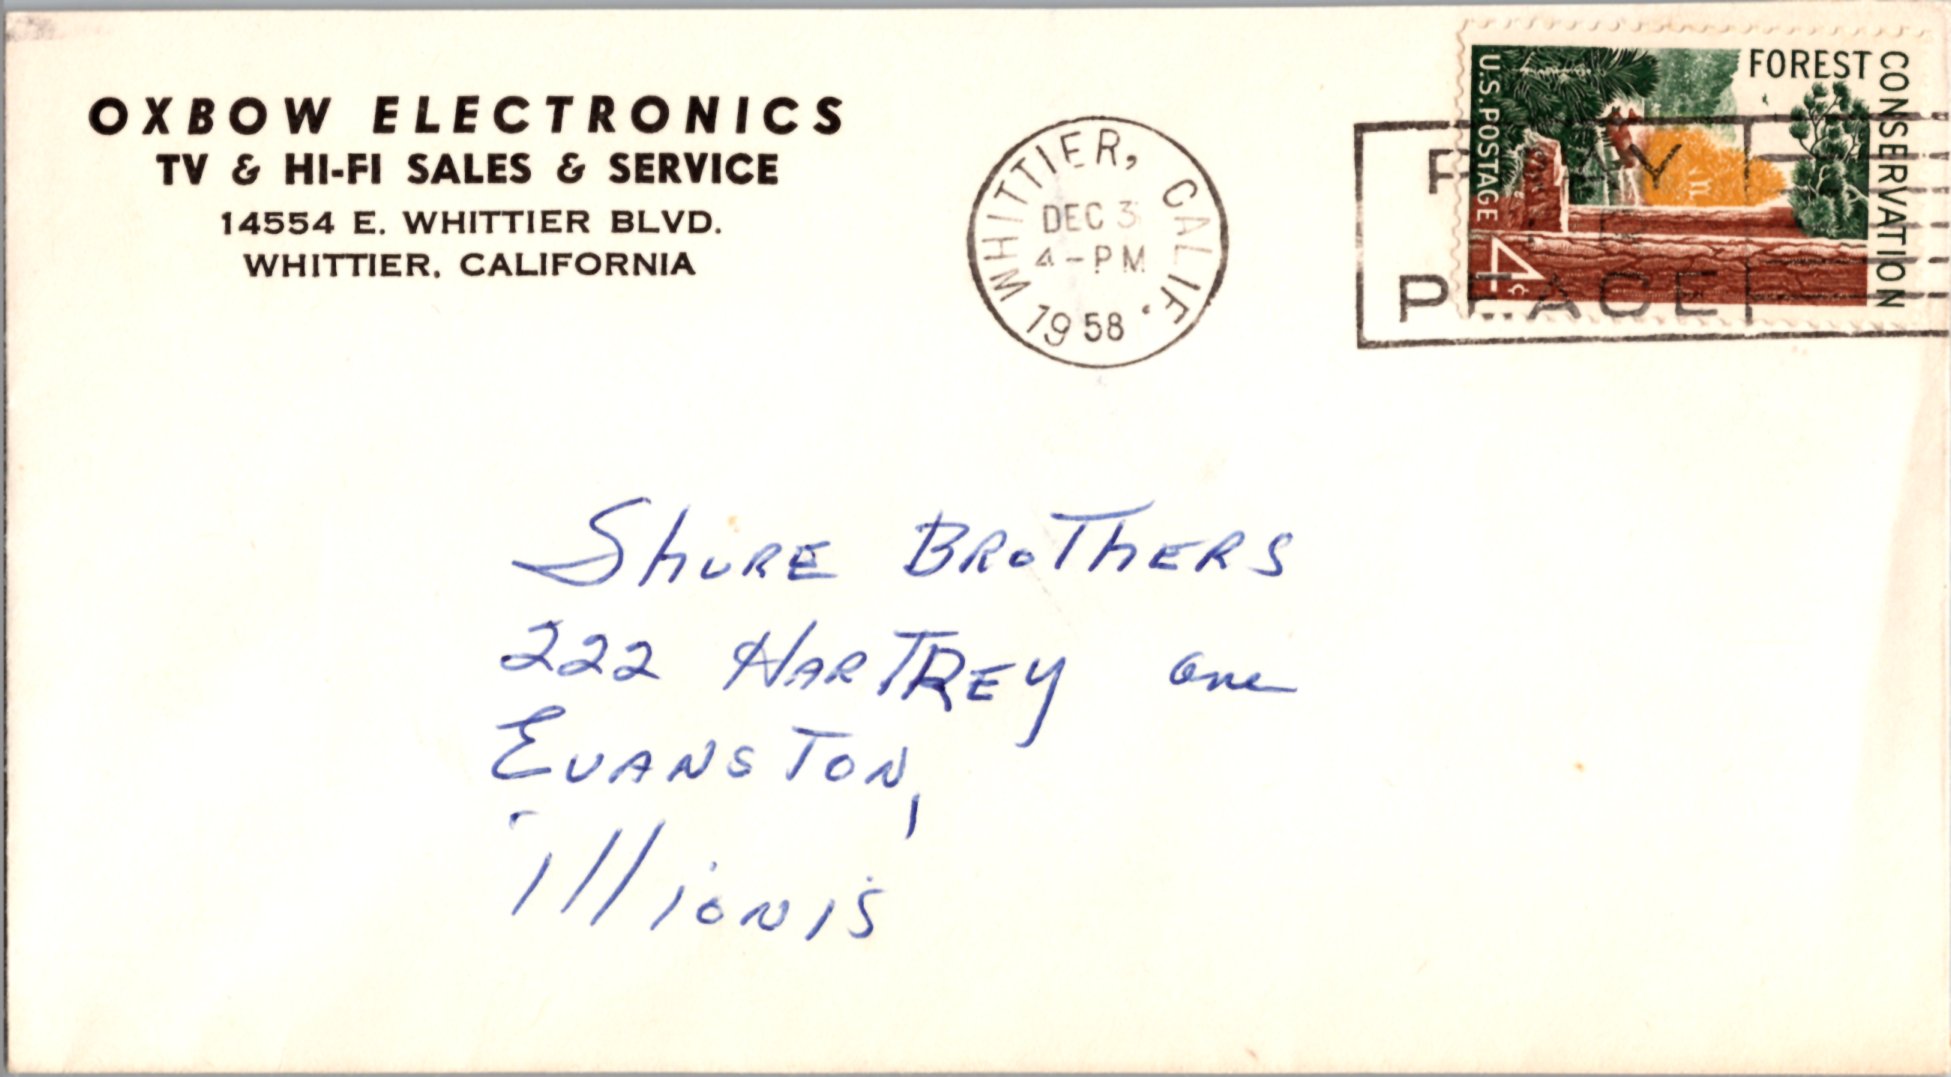 OXBOW ELECTRONICS
TV & HI-FI SALES & SERVICE
14554 E. WHITTIER BLVD.
WHITTIER, CALIFORNIA
WHITTIER, CALIF.
DEC 3
4-PM
1958
PRAY
FOR
PEACE
FOREST CONSERVATION
U.S. POSTAGE
4c
Shure Brothers
222 Hartrey Ave
Evanston,
Illionis